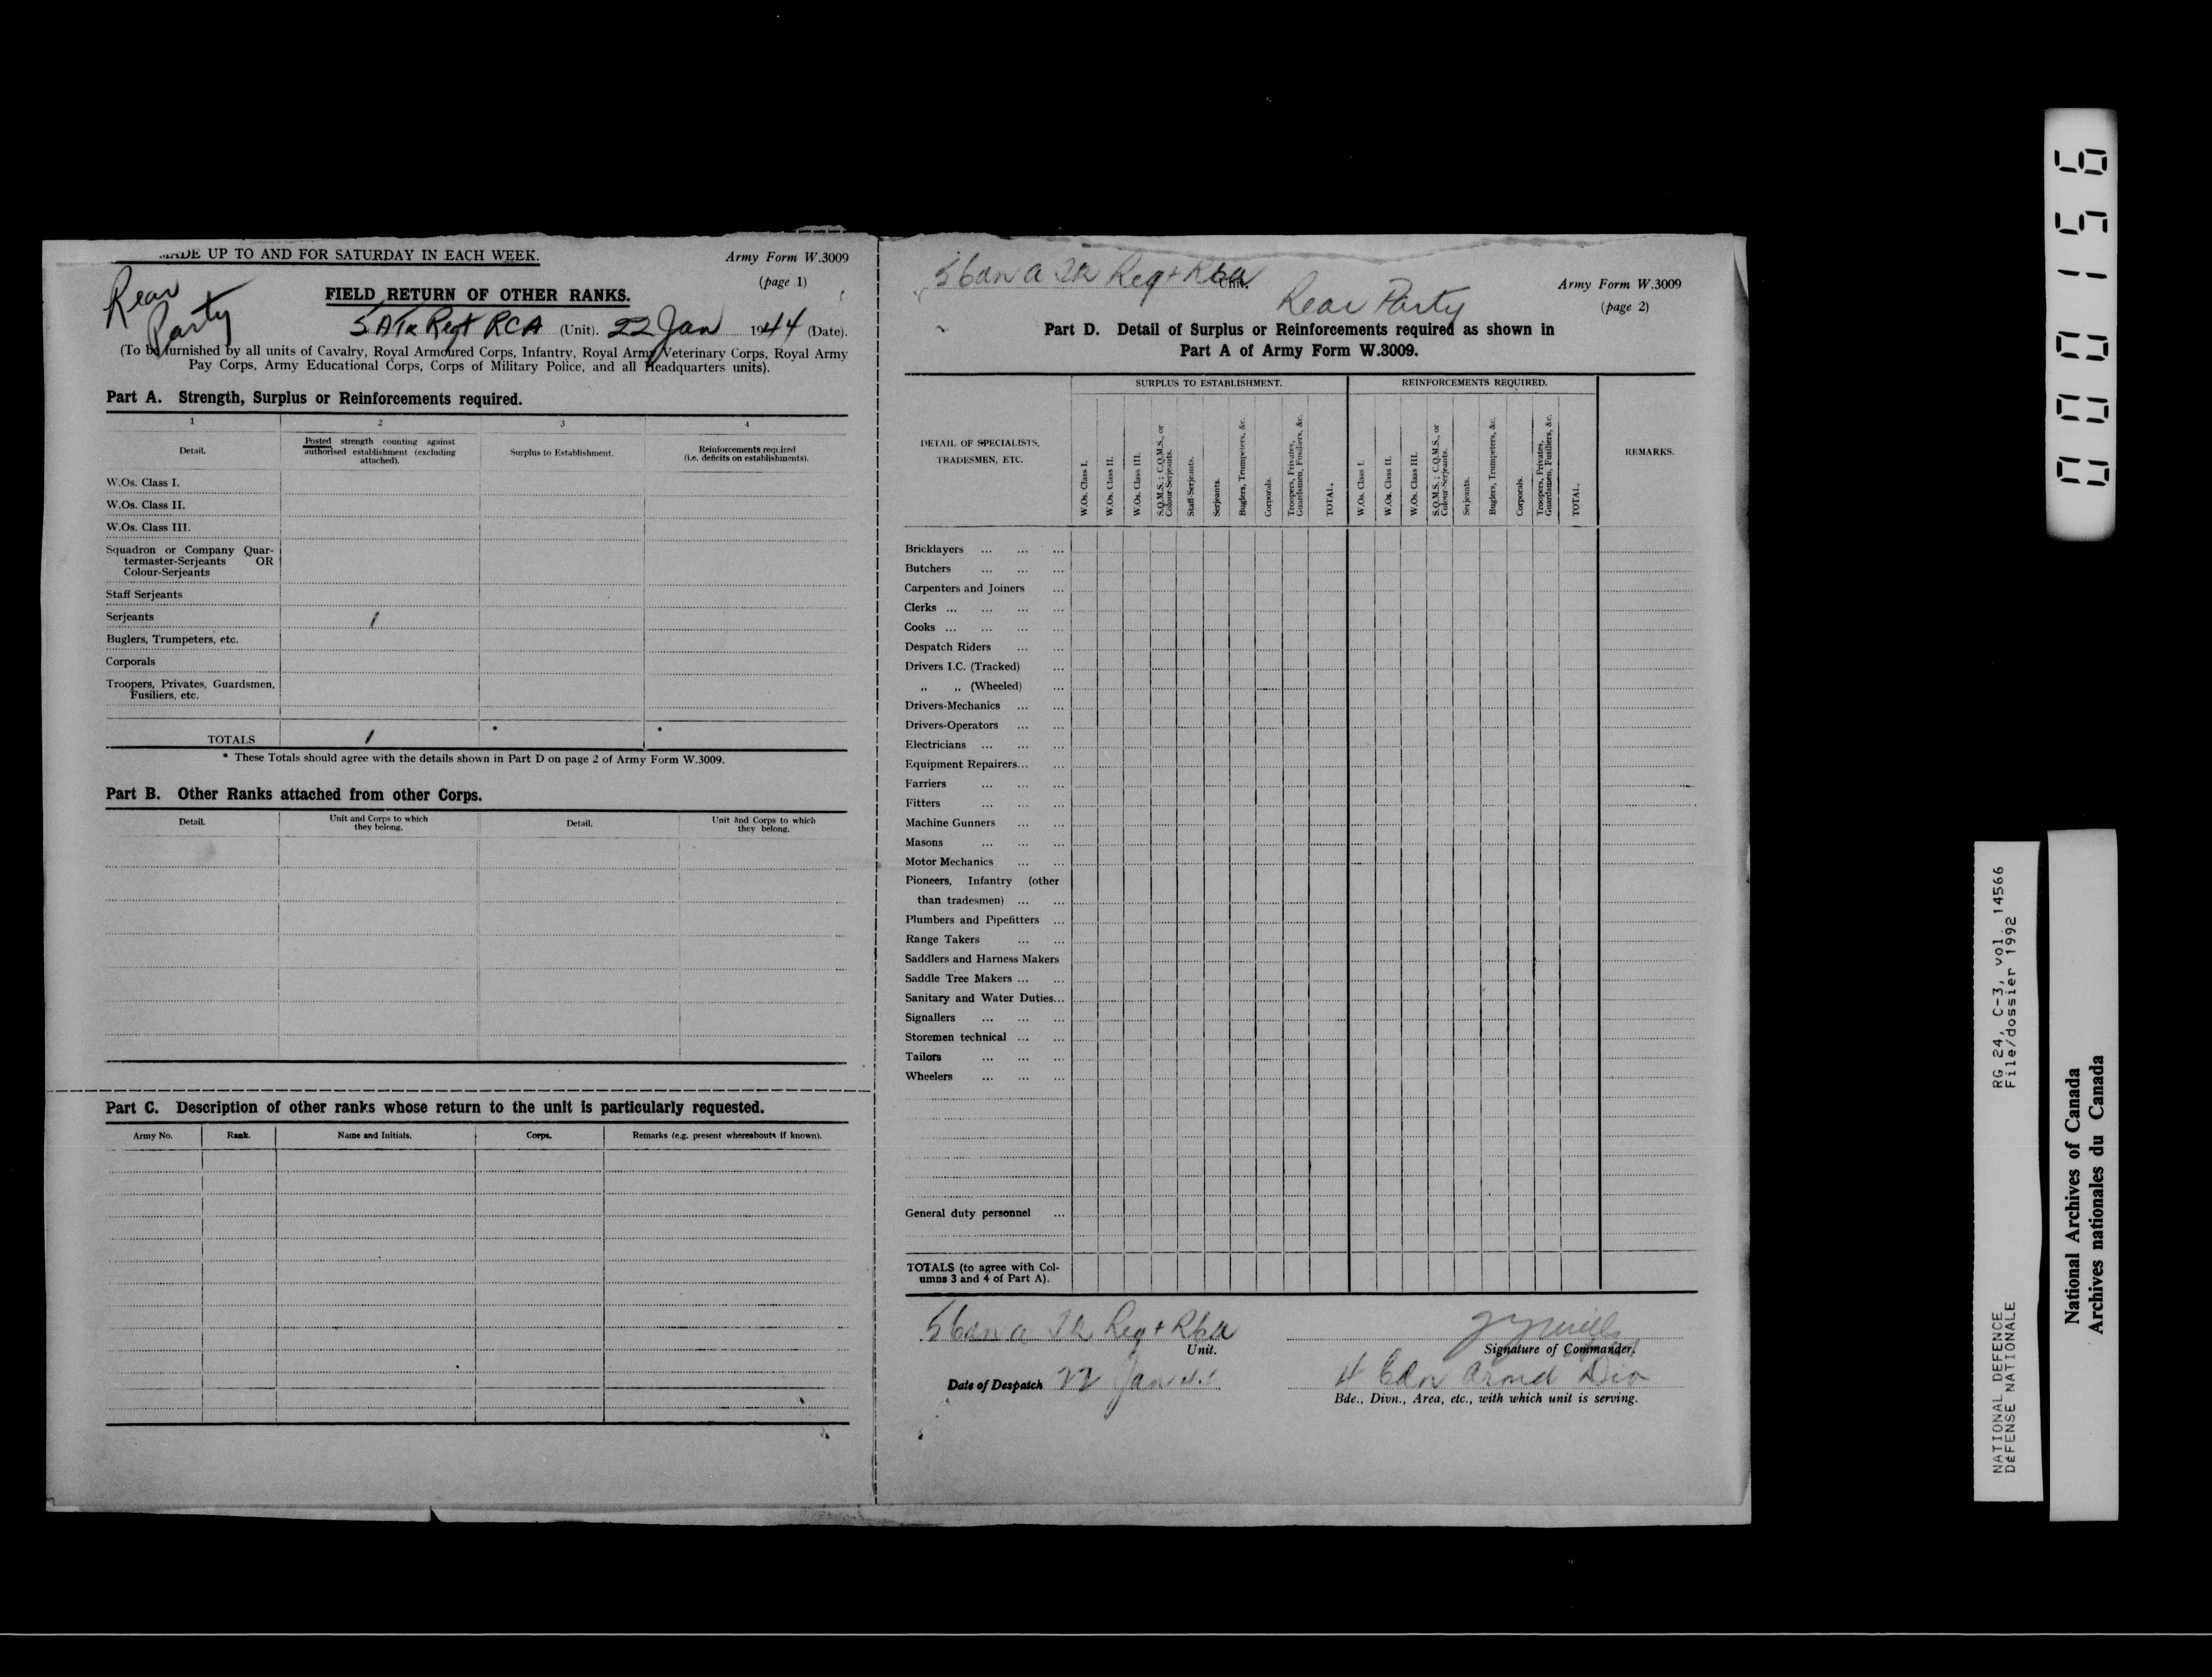 MADE UP TO AND FOR SATURDAY IN EACH WEEK.
Army Form W.3009
(page 1)
Rear
Party
FIELD RETURN OF OTHER RANKS.
5 A Tk Regt RCA (Unit). 22 Jan 1944 (Date).
(To be furnished by all units of Cavalry, Royal Armoured Corps, Infantry, Royal Army Veterinary Corps, Royal Army
Pay Corps, Army Educational Corps, Corps of Military Police, and all Headquarters units).
Part A. Strength, Surplus or Reinforcements required.
1 2 3 4
Detail.
Posted strength counting against
authorised establishment (excluding
attached).
Surplus to Establishment.
Reinforcements required
(i.e. deficits on establishments).
W.Os. Class I.
W.Os. Class II.
W.Os. Class III.
Squadron or Company Quar-
termaster-Serjeants OR
Colour-Serjeants
Staff Serjeants
Serjeants 1
Buglers, Trumpeters, etc.
Corporals
Troopers, Privates, Guardsmen,
Fusiliers, etc.
TOTALS 1 * *
* These Totals should agree with the details shown in Part D on page 2 of Army Form W.3009.
Part B. Other Ranks attached from other Corps.
Detail.
Unit and Corps to which
they belong.
Detail.
Unit and Corps to which
they belong.
Part C. Description of other ranks whose return to the unit is particularly requested.
Army No. Rank. Name and Initials. Corps. Remarks (e.g. present whereabouts if known).
5 Cdn A Tk Regt RCA Unit.
Rear Party
Army Form W.3009
(page 2)
Part D. Detail of Surplus or Reinforcements required as shown in
Part A of Army Form W.3009.
DETAIL OF SPECIALISTS,
TRADESMEN, ETC.
SURPLUS TO ESTABLISHMENT.
W.Os. Class I.
W.Os. Class II.
W.Os. Class III.
S.Q.M.S.; C.Q.M.S., or
Colour-Serjeants.
Staff-Serjeants.
Serjeants.
Buglers, Trumpeters, &c.
Corporals.
Troopers, Privates,
Guardsmen, Fusiliers, &c.
TOTAL.
REINFORCEMENTS REQUIRED.
W.Os. Class I.
W.Os. Class II.
W.Os. Class III.
S.Q.M.S.; C.Q.M.S., or
Colour-Serjeants.
Serjeants.
Buglers, Trumpeters, &c.
Corporals.
Troopers, Privates,
Guardsmen, Fusiliers, &c.
TOTAL.
REMARKS.
Bricklayers ... ... ...
Butchers ... ... ...
Carpenters and Joiners ...
Clerks ... ... ... ...
Cooks ... ... ... ...
Despatch Riders ... ...
Drivers I.C. (Tracked) ...
„ „ (Wheeled) ...
Drivers-Mechanics ... ...
Drivers-Operators ... ...
Electricians ... ... ...
Equipment Repairers... ...
Farriers ... ... ...
Fitters ... ... ...
Machine Gunners ... ...
Masons ... ... ...
Motor Mechanics ... ...
Pioneers, Infantry (other
than tradesmen) ... ...
Plumbers and Pipefitters ...
Range Takers ... ...
Saddlers and Harness Makers
Saddle Tree Makers ... ...
Sanitary and Water Duties...
Signallers ... ... ...
Storemen technical ... ...
Tailors ... ... ...
Wheelers ... ... ...
General duty personnel ...
TOTALS (to agree with Col-
umns 3 and 4 of Part A).
5 Cdn A Tk Regt RCA
Unit.
Signature of Commander.
Date of Despatch 22 Jan 44
4 Cdn Armd Div
Bde., Divn., Area, etc., with which unit is serving.
000156
NATIONAL DEFENCE
DÉFENSE NATIONALE
RG 24, C-3, vol. 14566
File/dossier 1992
National Archives of Canada
Archives nationales du Canada